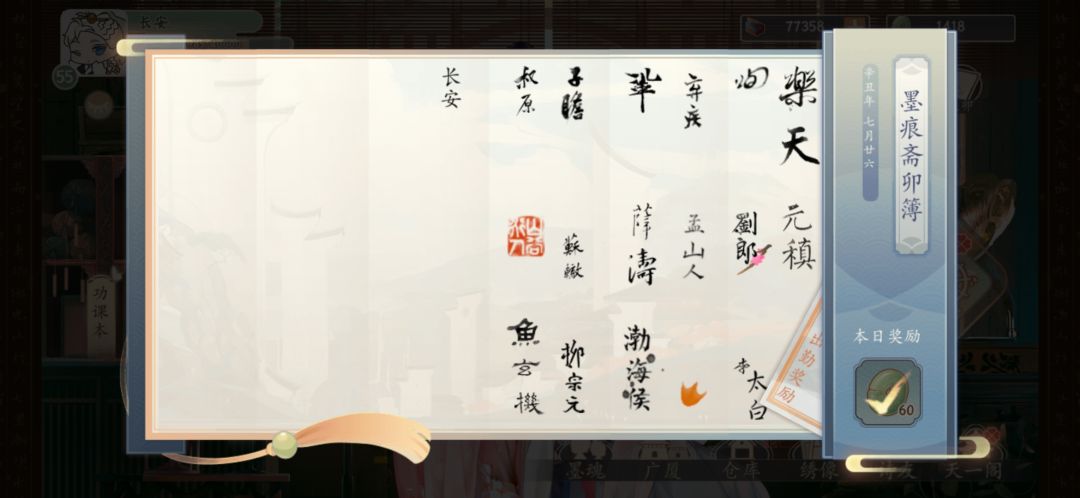 长安
55
77358
1418
墨痕斋卯簿
辛丑年 七月廿六
樂天
元稹
劉郎
李太白
弃疾
孟山人
鞏
薛濤
渤海侯
子瞻
蘇轍
柳宗元
叔原
魚玄機
长安
本日奖励
60
出勤奖励
功课本
墨魂
广厦
仓库
绣像
好友
天一阁